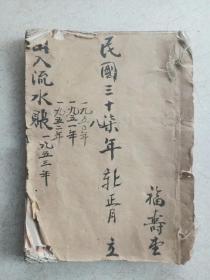 福壽堂
民國三十柒年新正月立
八
一九五〇年
一九五一年
一九五二年
一九五三年
出入流水賬